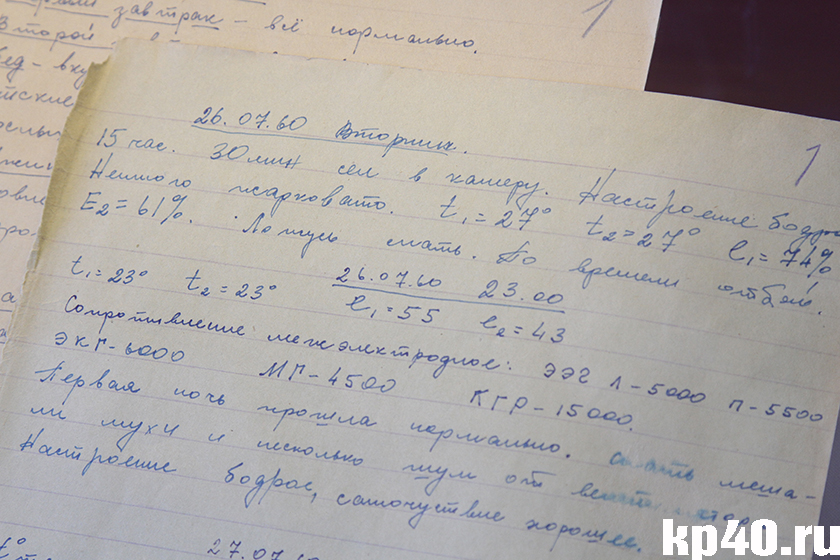 завтрак - всё нормально.
Второй
1
26.07.60 Вторник.
15 час. 30 мин сел в камеру. Настроение бодрое
Немного жарковато. t₁=27° t₂=27° l₁=74%
E₂=61%. Ложусь спать. По времени отбой.
26.07.60 23.00
t₁=23° t₂=23° l₁=55 l₂=43
Сопротивление межэлектродное: ЭЭГ Л-5000 П-5500
ЭКГ-6000 МГ-4500 КГР-15000.
Первая ночь прошла нормально. Спать меша-
ли мухи и несколько шум от вентилятора
Настроение бодрое, самочуствие хорошее.
kp40.ru